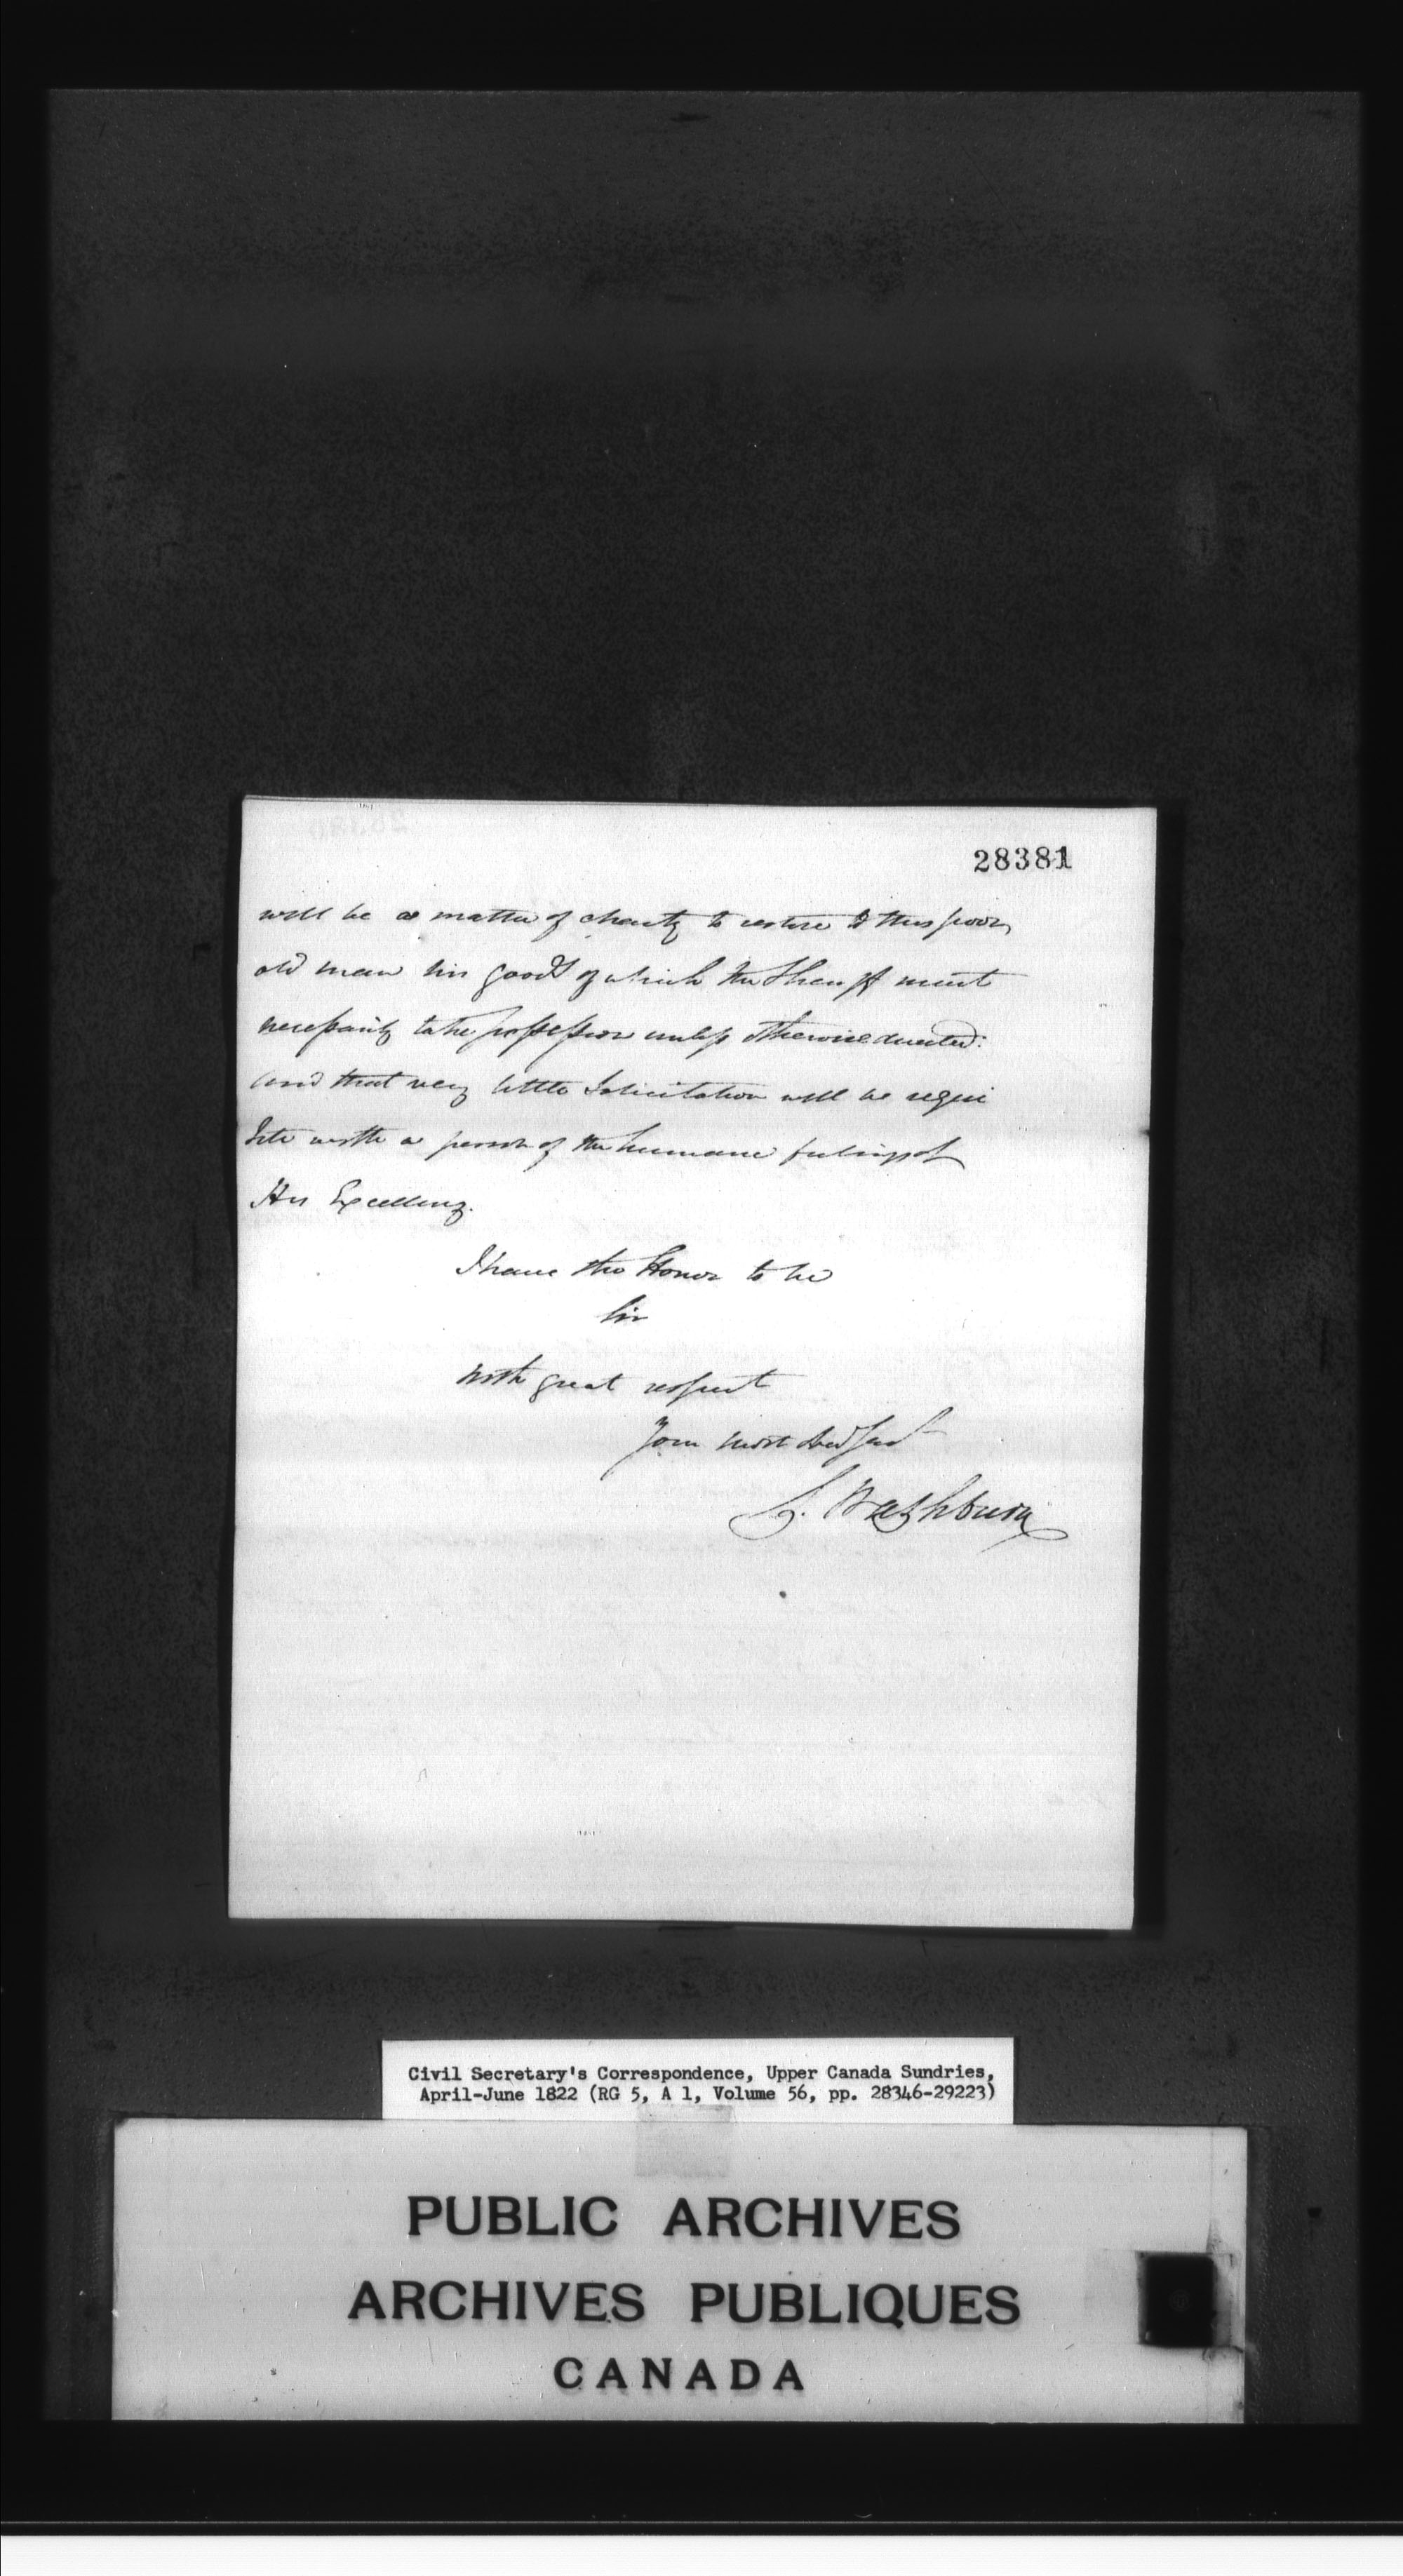 28381
will be a matter of charity to restore to this poor
old man his goods of which the Sheriff must
necessarily take possession unless otherwise directed:
and that very little Solicitation will be requi
site with a person of the humane feelings of
His Excellency.
I have the Honor to be
Sir
With great respect
Your most Obed Servt
S. Washburn
Civil Secretary's Correspondence, Upper Canada Sundries,
April-June 1822 (RG 5, A 1, Volume 56, pp. 28346-29223)
PUBLIC ARCHIVES
ARCHIVES PUBLIQUES
CANADA